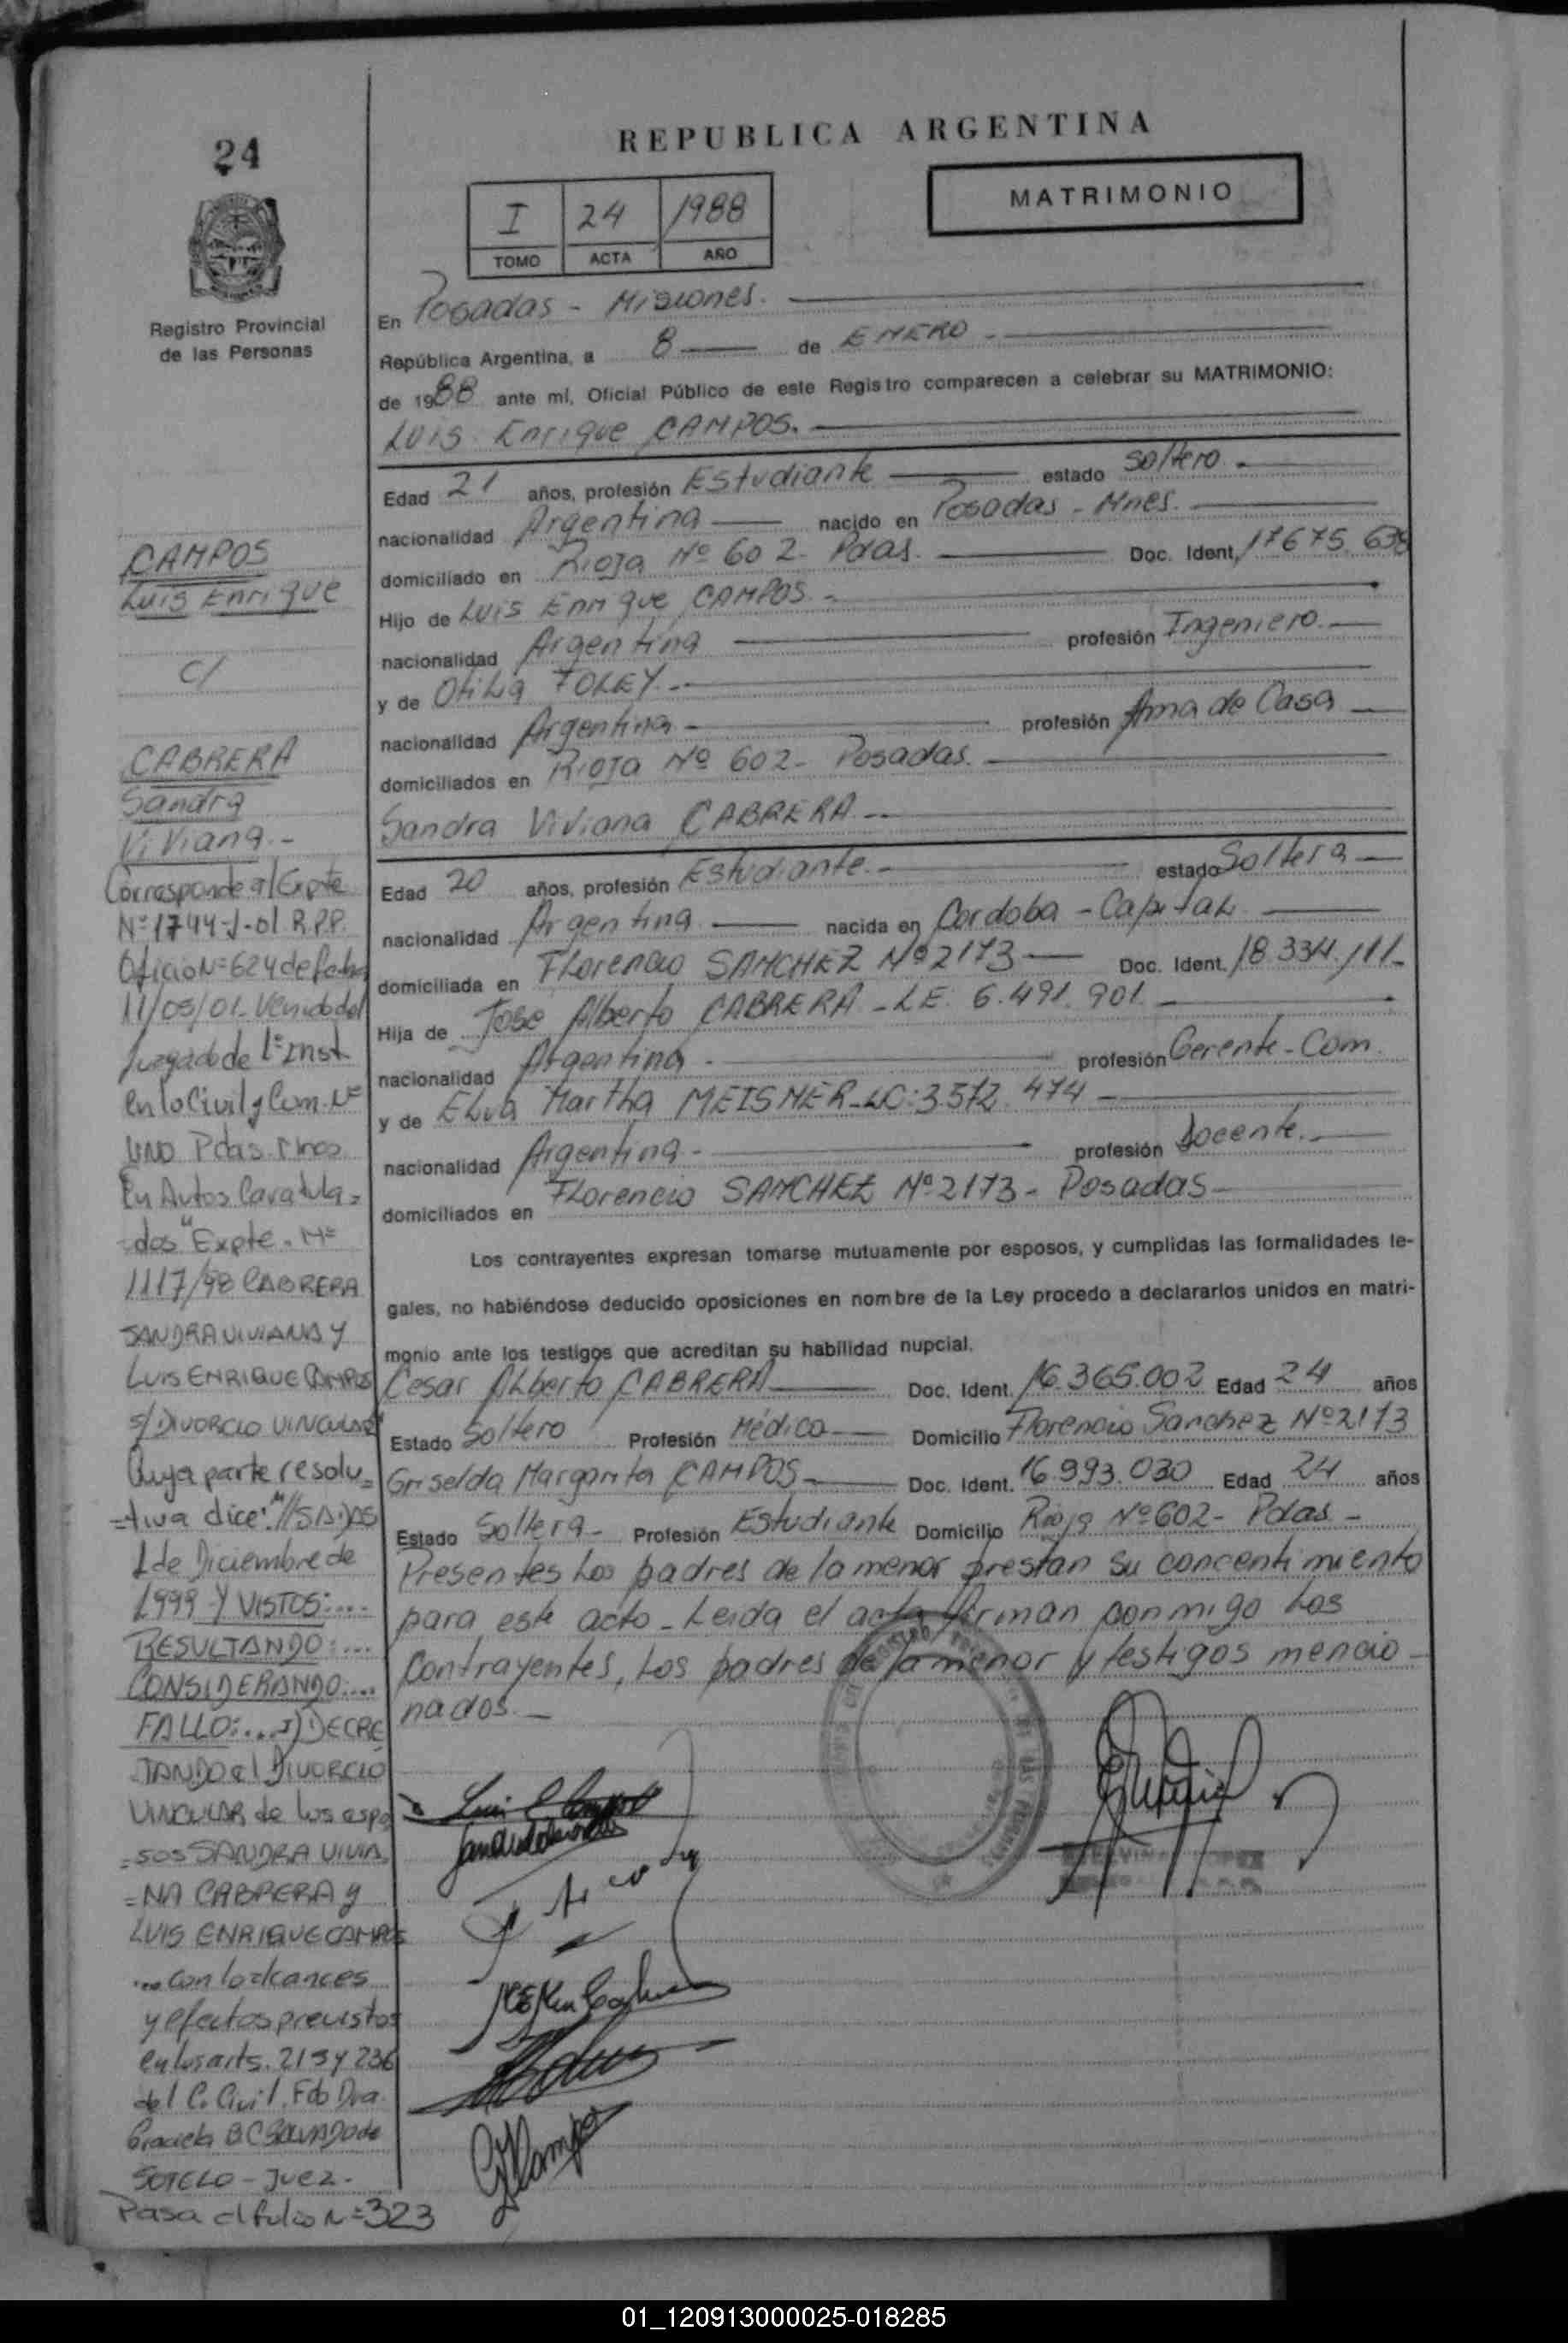 24
Registro Provincial
de las Personas
REPUBLICA ARGENTINA
I 24 1988
TOMO ACTA AÑO
MATRIMONIO
En Posadas - Misiones.
República Argentina, a 8 de ENERO -
de 1988 ante mí, Oficial Público de este Registro comparecen a celebrar su MATRIMONIO:
Luis Enrique CAMPOS.
Edad 21 años, profesión Estudiante estado soltero.
nacionalidad Argentina nacido en Posadas - Mnes.
domiciliado en Rioja Nº 602- Pdas. Doc. Ident. 17675.639
Hijo de Luis Enrique CAMPOS.-
nacionalidad Argentina profesión Ingeniero.
y de Otilia FOLEY.-
nacionalidad Argentina- profesión Ama de Casa
domiciliados en Rioja Nº 602- Posadas.
Sandra Viviana CABRERA-
Edad 20 años, profesión Estudiante.- estado Soltera
nacionalidad Argentina nacida en Cordoba - Capital
domiciliada en Florencio SANCHEZ Nº 2173 Doc. Ident. 18.334.111-
Hija de Jose Alberto CABRERA - LE. 6.491.901.
nacionalidad Argentina- profesión Gerente-Com.
y de Elva Martha MEISNER-LC:3.572.474-
nacionalidad Argentina- profesión Docente.
domiciliados en Florencio SANCHEZ Nº 2173- Posadas-
Los contrayentes expresan tomarse mutuamente por esposos, y cumplidas las formalidades le-
gales, no habiéndose deducido oposiciones en nombre de la Ley procedo a declararlos unidos en matri-
monio ante los testigos que acreditan su habilidad nupcial.
Cesar Alberto CABRERA Doc. Ident. 16.365.002 Edad 24 años
Estado Soltero Profesión Médico Domicilio Florencio Sanchez Nº 2173
Griselda Margarita CAMPOS Doc. Ident. 16.993.030 Edad 24 años
Estado Soltera- Profesión Estudiante Domicilio Rioja Nº 602- Pdas-
Presentes los padres de la menor prestan su concentimiento
para este acto- Leida el acta firman conmigo los
Contrayentes, los padres de la menor y testigos mencio-
nados.-
CAMPOS
Luis Enrique
c/
CABRERA
Sandra
Viviana.-
Corresponde al Expte
Nº 1744-J-01 R.P.P.
Oficio Nº 624 de fecha
11/05/01. Venido del
Juzgado de 1º Inst.
en lo Civil y Com. Nº
UNO Pdas. Mnes.
En Autos Caratula=
=dos "Expte. Nº
1117/98 CABRERA
SANDRA VIVIANA Y
LUIS ENRIQUE CAMPOS
s/ DIVORCIO VINCULAR"
Cuya parte resolu=
=tiva dice:
1 de Diciembre de
1999 Y VISTOS:....
RESULTANDO:....
CONSIDERANDO:....
FALLO:... I) DECRE
TANDO el DIVORCIO
VINCULAR de los espo
=sos SANDRA VIVIA
=NA CABRERA y
LUIS ENRIQUE CAMPOS
... con los alcances
y efectos previstos
en los arts. 215 y 236
del C. Civil. Fdo Dra.
Graciela B.C SALVADO de
SOTELO - Juez.
Pasa al folio Nº 323
01_120913000025-018285